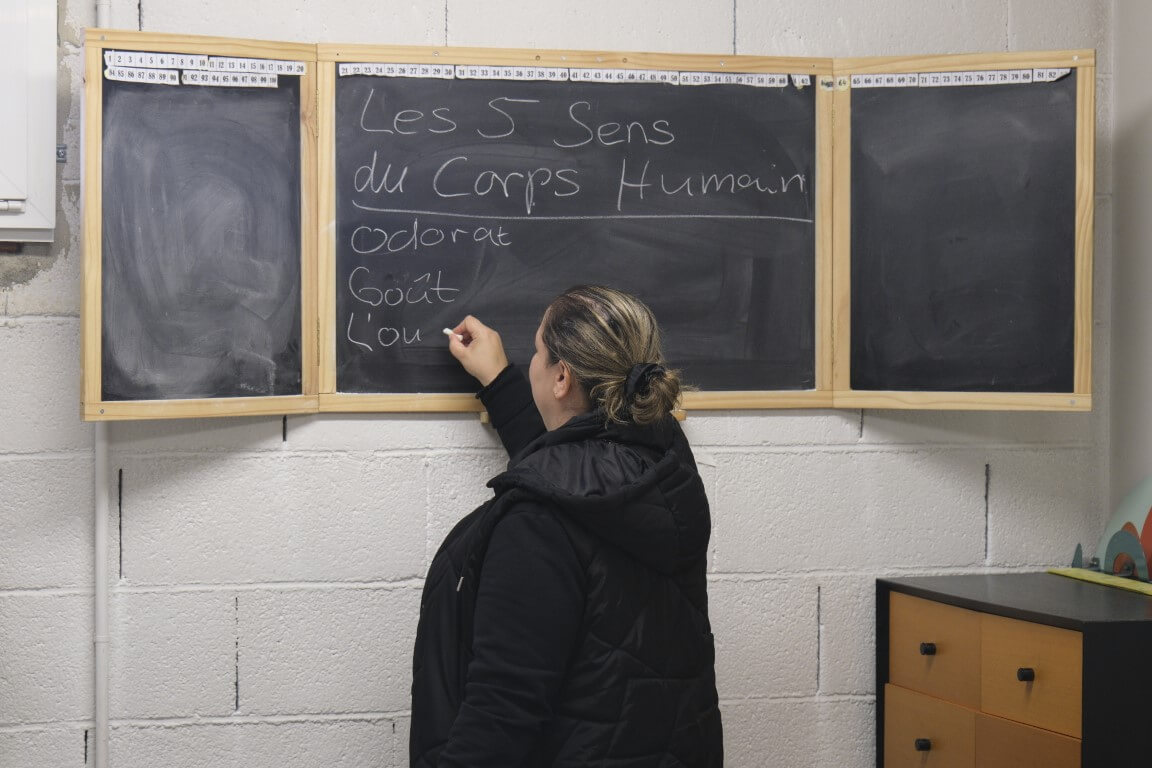 1 2 3 4 5 6 7 8 9 10 11 12 13 14 15 16 17 18 19 20
84 85 86 87 88 89 90 92 93 94 95 96 97 98 99 100
21 22 23 24 25 26 27 28 29 30 31 32 33 34 35 36 37 38 39 40 41 42 43 44 45 46 47 48 49 50 51 52 53 54 55 56 57 58 59 60 61 62
64 65 66 67 68 69 70 71 72 73 74 75 76 77 78 79 80 81 82
Les 5 Sens
du Corps Humain
Odorat
Goût
L'ou